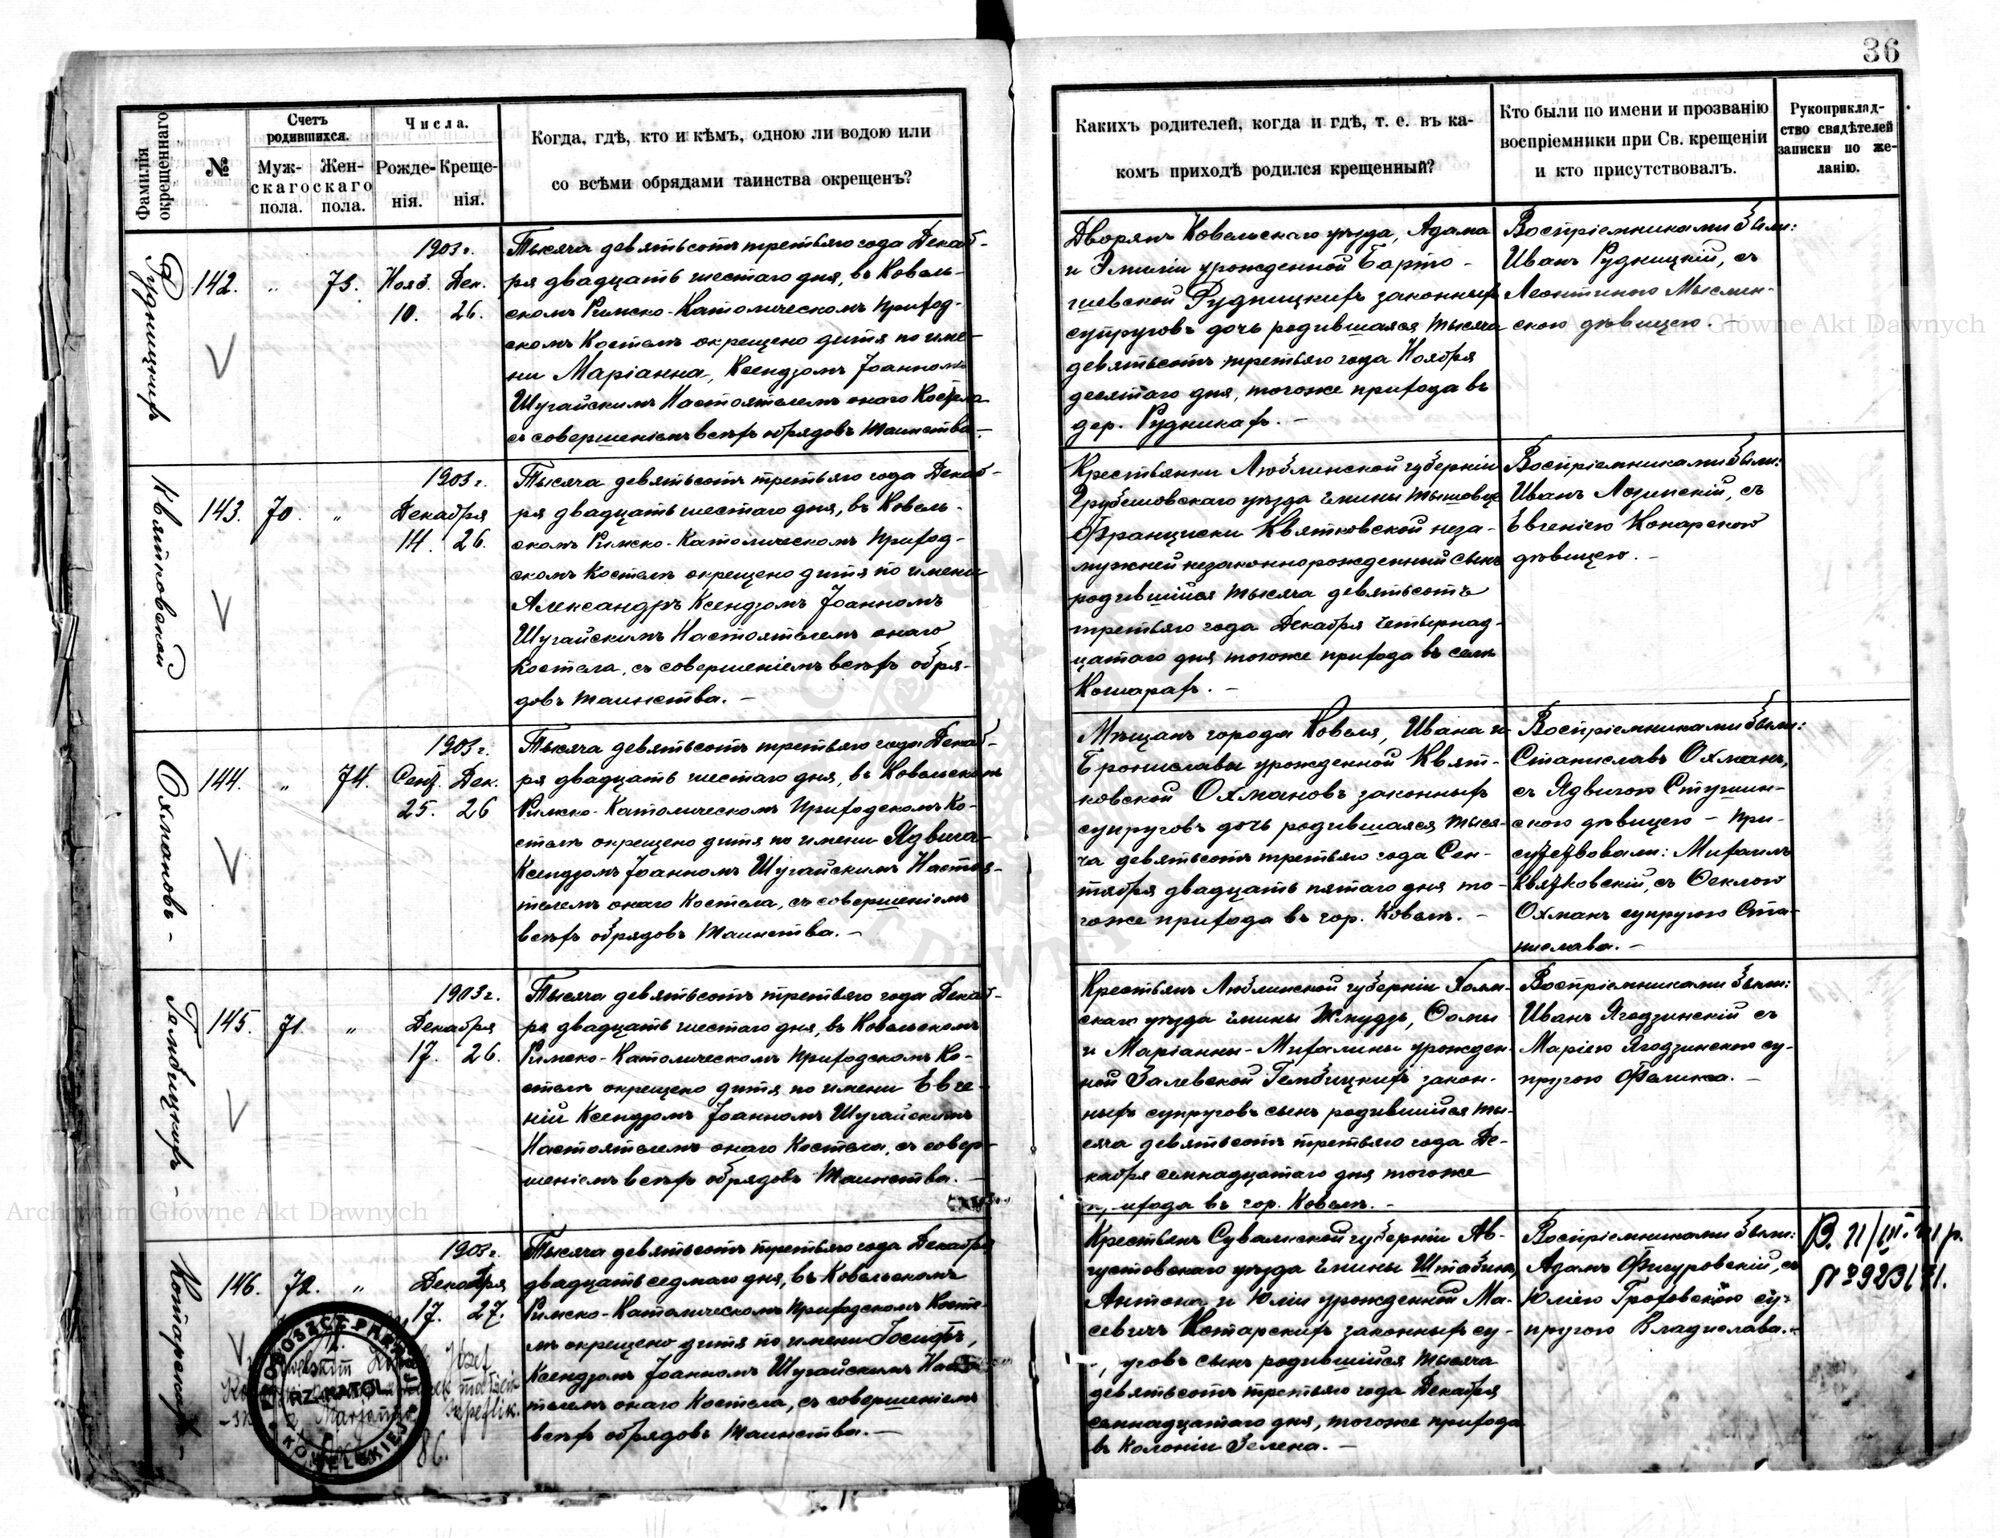 36
Фамилія окрещеннаго
№
Счетъ родившихся.
Мужскаго пола.
Женскаго пола.
Числа.
Рожденія.
Крещенія.
Когда, гдѣ, кто и кѣмъ, одною ли водою или
со всѣми обрядами таинства окрещенъ?
Какихъ родителей, когда и гдѣ, т. е. въ ка-
комъ приходѣ родился крещенный?
Кто были по имени и прозванію
воспріемники при Св. крещеніи
и кто присутствовалъ.
Рукоприклад-
ство свидѣтелей
записки по же-
ланію.
Рудницкихъ
142. " 73.
1903 г.
Нояб. Дек.
10. 26.
Тысяча девятьсотъ третьяго года Декаб-
ря двадцать шестаго дня, въ Ковель-
скомъ Римско-Католическомъ Приход-
скомъ Костелѣ окрещено дитя по име-
ни Маріанна, Ксендзомъ Іоанномъ
Шугайскимъ Настоятелемъ онаго Костела
съ совершеніемъ всѣхъ обрядовъ Таинства.
Дворянъ Ковельскаго уѣзда, Адама
и Эмиліи урожденной Барто-
шевской Рудницкихъ законныхъ
супруговъ дочь родившаяся тысяча
девятьсотъ третьяго года Ноября
десятаго дня, тогоже прихода въ
дер. Рудникахъ. —
Воспріемниками были:
Иванъ Рудницкій, съ
Леонтиною Мыслин-
скою дѣвицею. —
Квятковской
143. 70. "
1903 г.
Декабря
14. 26.
Тысяча девятьсотъ третьяго года Декаб-
ря двадцать шестаго дня, въ Ковель-
скомъ Римско-Католическомъ Приход-
скомъ Костелѣ окрещено дитя по имени
Александръ Ксендзомъ Іоанномъ
Шугайскимъ Настоятелемъ онаго
Костела, съ совершеніемъ всѣхъ обря-
довъ таинства. —
Крестьянки Люблинской губерніи
Грубешовскаго уѣзда гмины Тышовце
Франциски Квятковской неза-
мужней незаконнорожденный сынъ
родившійся тысяча девятьсотъ
третьяго года Декабря четырнад-
цатаго дня тогоже прихода въ селѣ
Кошарахъ. —
Воспріемниками были:
Иванъ Лозинскій, съ
Евгеніею Конарскою
дѣвицею. —
Охмановъ -
144. " 74.
1903 г.
Сент. Дек.
25. 26
Тысяча девятьсотъ третьяго года Декаб-
ря двадцать шестаго дня, въ Ковельскомъ
Римско-Католическомъ Приходскомъ Ко-
стелѣ окрещено дитя по имени Ядвига
Ксендзомъ Іоанномъ Шугайскимъ Настоя-
телемъ онаго Костела, съ совершеніемъ
всѣхъ обрядовъ Таинства. —
Мѣщанъ города Ковеля, Ивана и
Брониславы урожденной Квят-
ковской Охмановъ законныхъ
супруговъ дочь родившаяся тыся-
ча девятьсотъ третьяго года Сен-
тября двадцать пятаго дня то-
гоже прихода въ гор. Ковелѣ. —
Воспріемниками были:
Станиславъ Охманъ,
съ Ядвигою Ступин-
скою дѣвицею — При-
сутствовали: Михаилъ
Квятковскій, съ Феклою
Охманъ супругою Ста-
нислава. —
Гембицкихъ -
145. 71. "
1903 г.
Декабря
17. 26.
Тысяча девятьсотъ третьяго года Декаб-
ря двадцать шестаго дня, въ Ковельскомъ
Римско-Католическомъ Приходскомъ Ко-
стелѣ окрещено дитя по имени Евге-
ній Ксендзомъ Іоанномъ Шугайскимъ
Настоятелемъ онаго Костела, съ совер-
шеніемъ всѣхъ обрядовъ Таинства. —
Крестьянъ Люблинской губерніи Холм-
скаго уѣзда гмины Жмудзь, Ѳомы
и Маріанны-Михалины урожден-
ной Залевской Гембицкихъ закон-
ныхъ супруговъ сынъ родившійся ты-
сяча девятьсотъ третьяго года Де-
кабря семнадцатаго дня тогоже
прихода въ гор. Ковелѣ. —
Воспріемниками были:
Иванъ Ягодзинскій съ
Маріею Ягодзинскою су-
пругою Феликса. —
Котарскихъ -
146. 72. "
1903 г.
Декабря
17. 27.
Тысяча девятьсотъ третьяго года Декабря
двадцать седмаго дня, въ Ковельскомъ
Римско-Католическомъ Приходскомъ Косте-
лѣ окрещено дитя по имени Іосифъ,
Ксендзомъ Іоанномъ Шугайскимъ Насто-
телемъ онаго Костела, съ совершеніемъ
всѣхъ обрядовъ Таинства. —
Крестьянъ Сувалкской губерніи Ав-
густовскаго уѣзда гмины Штабинъ,
Антона и Юліи урожденной Ма-
севичъ Котарскихъ законныхъ су-
руговъ сынъ родившійся тысяча
девятьсотъ третьяго года Декабря
семнадцатаго дня, тогоже прихода
въ колоніи Зелена. —
Воспріемниками были:
Адамъ Фигуровскій, съ
Юліею Гроховскою су-
пругою Владислава. —
Józef
Marjanną
86.
PROBOSZCZ PARAFJI
RZ. KATOL.
KOWELSKIEJ
Archiwum Główne Akt Dawnych
Archiwum Główne Akt Dawnych